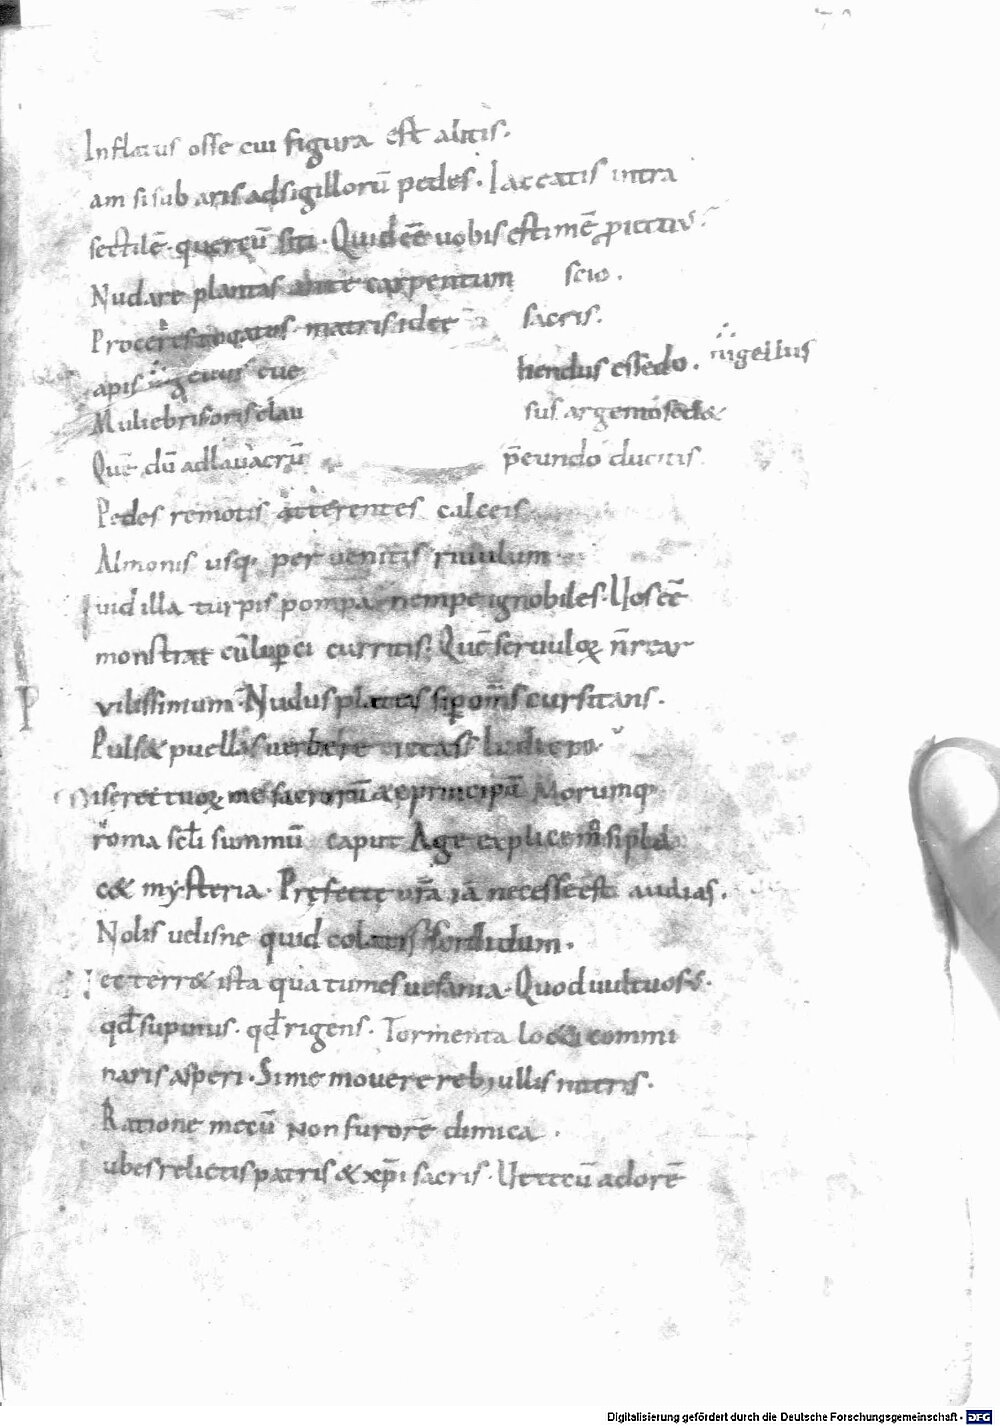 Inflatus osse cui figura est alitis.
am si sub aris ad sigillorū pedes. Iaceatis intra
sectilē. quercū siti. Quid eē uobis estimē
Nudare plantas ante carpentum scio.
Proceres togatus matris idee sacris.
apis uehendus essedo. nigellus
Muliebris oris clausus argento sed&
Quē dū ad lauacrū p̄eundo ducitis.
Pedes remotis atterentes calceis
Almonis usq; per uenitis riuulum
uid illa turpis pompa nempe ignobiles. Uos eē
monstrat cū luperci curritis. Quē seruulorꝫ
vilissimum. Nudus plateas si p om̄s cursitans.
Puls& puellas uerbere ictas ludicro.
iseret tuorꝫ me sacrorū & principū Morumq;
roma scl̄i summū caput Age explicem si plac&
c& mysteria. Prefecte ur̄a iā necesse est audias.
Nolis uelisne quid colatis sordidum.
ec terr& ista qua tumes uesania. Quod uultuosus.
qd̄ supinus. qd̄ rigens. Tormenta loeti commi
naris asperi. Si me mouere reb; ullis niteris.
Ratione mecū non furorē dimica.
ubes relictis patris & xp̄i sacris. Ut tecū adorē
Digitalisierung gefördert durch die Deutsche Forschungsgemeinschaft - DFG